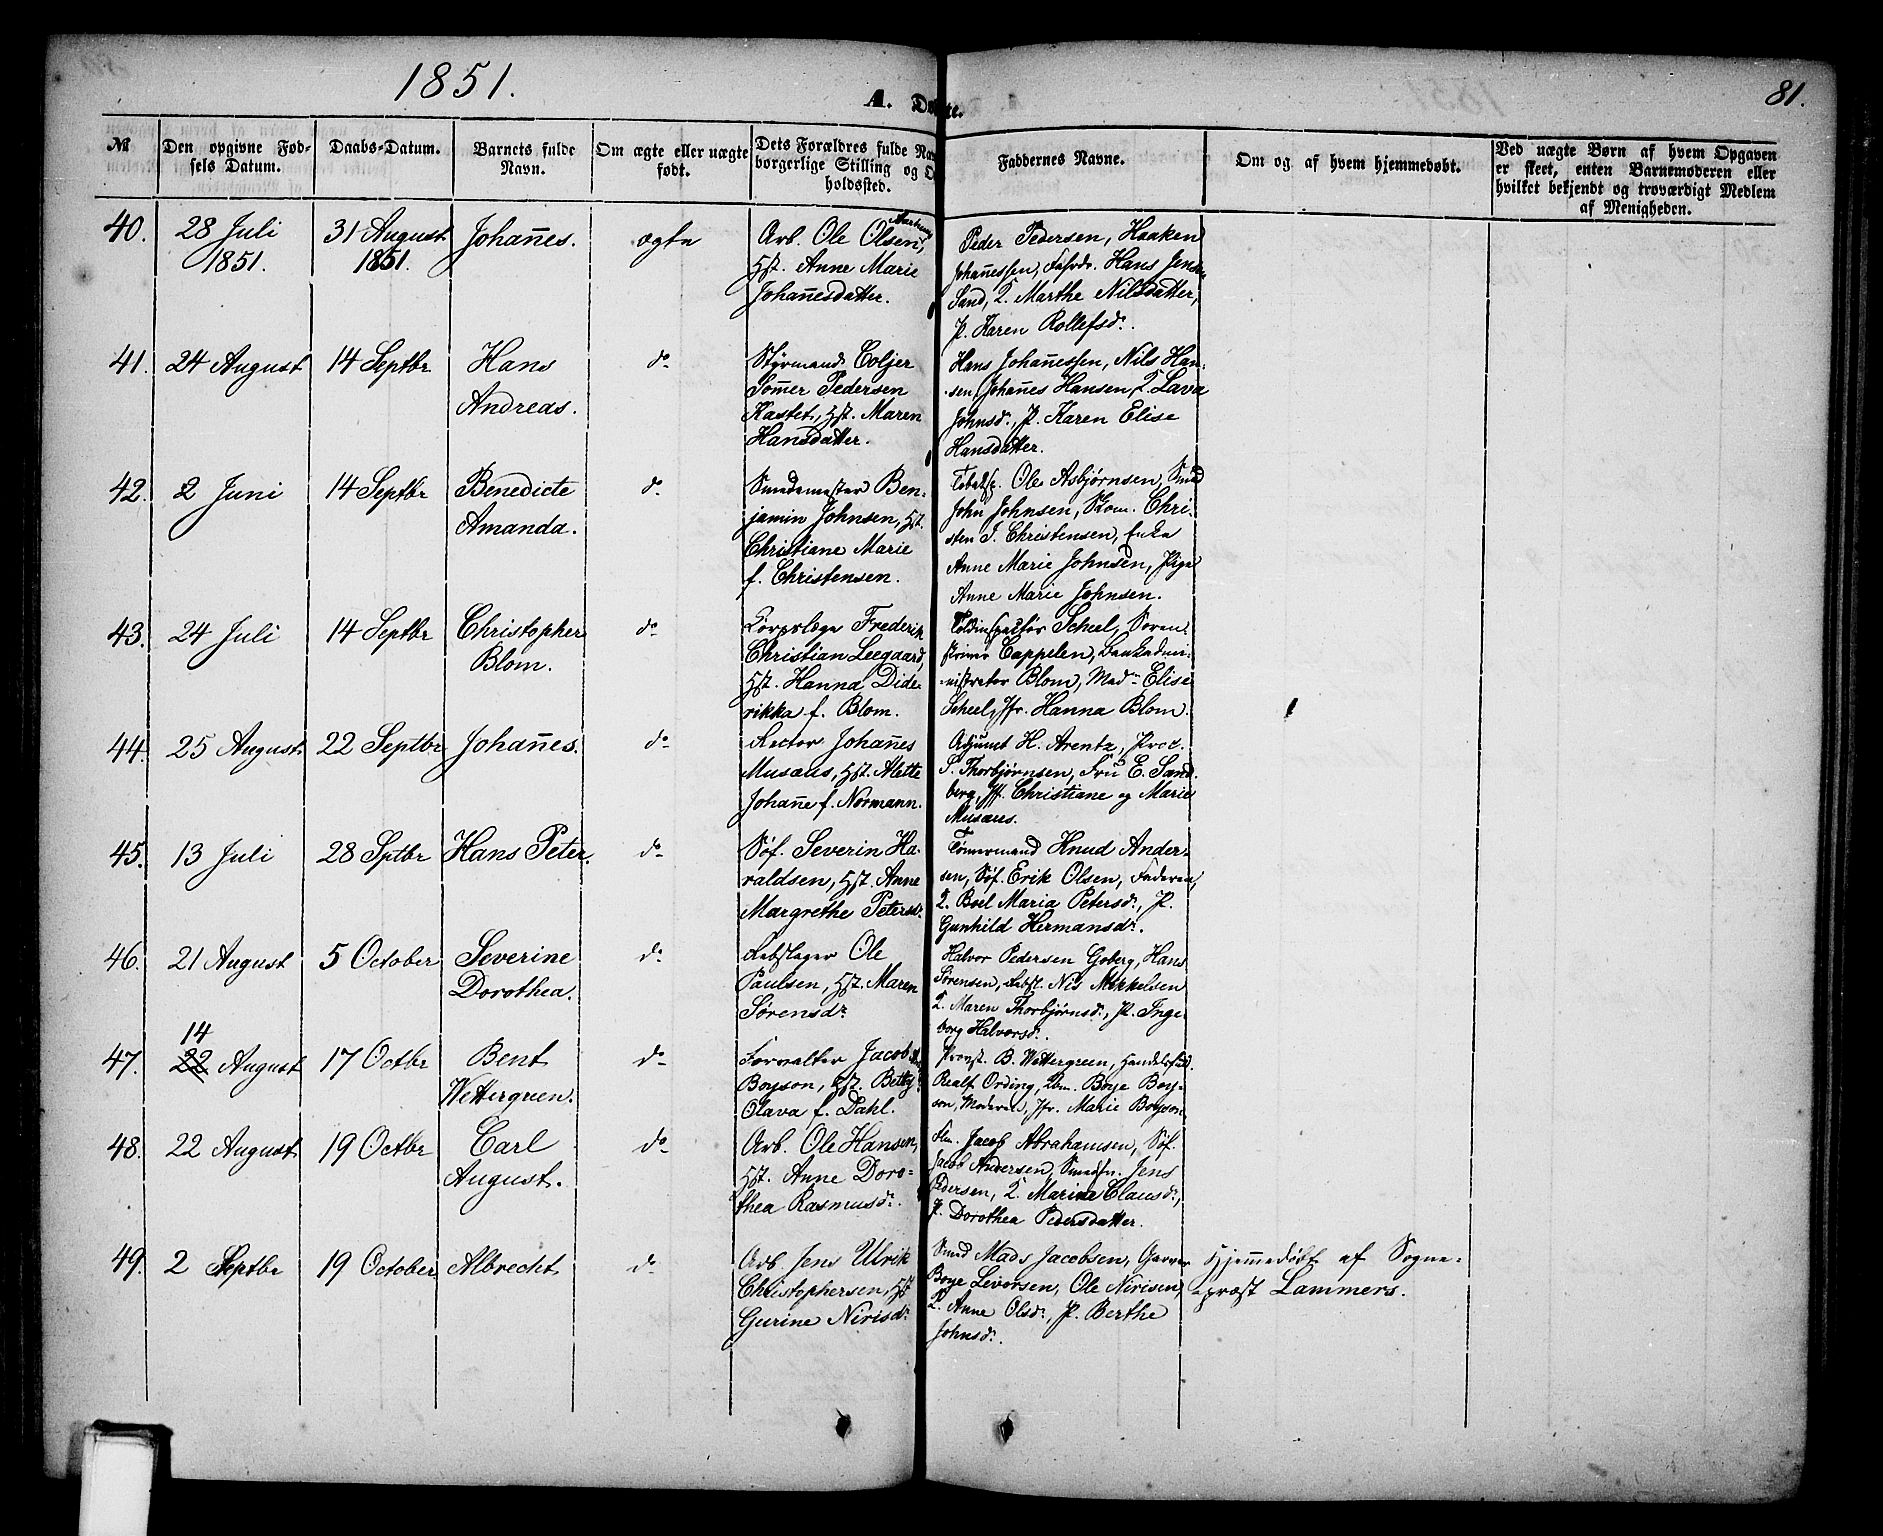 1851.
A. Døbte.
81.
No
Den opgivne Fød-
sels Datum.
Daabs-Datum.
Barnets fulde
Navn.
Om ægte eller uægte
født.
Dets Forældres fulde Na
borgerlige Stilling og O
holdssted.
Faddernes Navne.
Om og af hvem hjemmedøbt.
Ved uægte Børn af hvem Opgaven
er skeet, enten Barnemoderen eller
hvilket bekjendt og troværdigt Medlem
af Menigheden.
40.
28 Juli
1851.
31 August
1851.
Johan̄es.
ægte
Arb. Ole Olsen,
Hst. Anne Marie
Johan̄esdatter.
Peder Pedersen, Haaken
Johan̄essen, Hans Jensen
Sand, Q. Marthe Nilsdatter,
P. Karen Rollefsdr.
41.
24 August
14 Septbr
Hans
Andreas.
do
Styrmand Coljer
Som̄er Pedersen
Kastet, Hst. Maren
Hansdatter.
Hans Johan̄essen, Nils Han-
sen, Johan̄es Hansen, Q. Lava
Johnsdr., P. Karen Elise
Hansdatter.
42.
2 Juni
14 Septbr
Benedicte
Amanda.
do
Smedemester Ben-
jamin Johnsen, Hst.
Christiane Marie
f. Christensen.
Tobaksf. Ole Asbjørnsen, Smed
John Johnsen, Skom. Chri-
sten J. Christensen, Enke
Anne Marie Johnsen, Pige
Anne Marie Johnsen.
43.
24 Juli
14 Septbr
Christopher
Blom.
do
Corpslæge Frederik
Christian Leegaard,
Hst. Hanna Dide-
rikka f. Blom.
Toldinspecteur Scheel, Soren-
skriver Cappelen, Bankadmi-
nistrator Blom, Madm Elise
Scheel, Jfr. Hanna Blom.
44.
25 August
22 Septbr
Johan̄es.
do
Rector Johan̄es
Musæus, Hst. Mette
Johan̄e f. Normann.
Adjunct H. Arentz, Proc.
S. Thorbjørnsen, Fru E. Sand-
berg, Jf. Christiane og Marie
Musæus.
45.
13 Juli
28 Sptbr
Hans Peter.
do
Søf. Severin Ha-
raldsen, Hst. Anne
Margrethe Petersdr
Tømmermand Knud Ander-
sen, Søf. Erik Olsen, Faderen,
Q. Boel Maria Petersdr., P.
Gunhild Hermansdr.
46.
21 August
5 October
Severine
Dorothea.
do
Rebslager Ole
Paulsen, Hst. Maren
Sørensdr
Halvor Pedersen Goberg, Hans
Sørensen, Rebsl. Nis Mikkelsen
Q. Maren Thorbjørnsdr., P. Inge-
borg Halvorsdr.
47.
14
22 August
17 Octbr
Bent
Wettergreen.
do
Forvalter Jacob
Boyson, Hst. Betty
Olava f. Dahl.
Provst B. Wettergreen,
Realf Ording, Boye Boy-
son, Moderen, Jfr. Marie Boyson
48.
22 August
19 Octbr
Carl
August.
do
Arb. Ole Hansen,
Hst. Anne Doro-
thea Rasmusdr.
Jacob Abrahamsen, Søf.
Jacob Andersen, Smedsv. Jens
Pedersen, Q. Marine Clausdr.,
P. Dorothea Pedersdatter.
49.
2 Septbr
19 October
Albrecht
do
Arb. Jens Ulrik
Christophersen, Hst
Gurine Nirisdr
Smed Mads Jacobsen, Garver
Boye Leversen, Ole Nirisen,
Q. Anne Olsdr., P. Berthe
Johnsdr.
Hjem̄edøbt af Sogne-
præst Lammers.